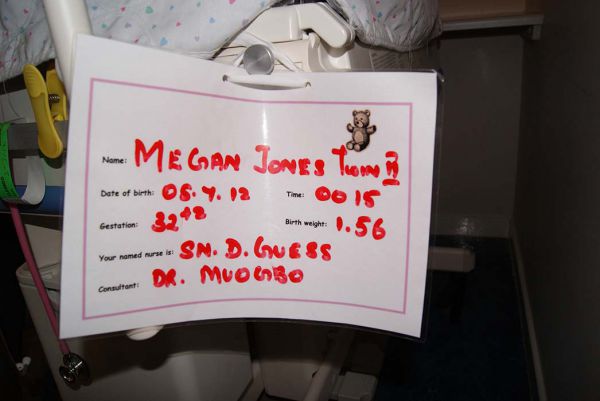 Name: MEGAN JONES TWIN II
Date of birth: 05.4.12 Time: 0015
Gestation: 32+2 Birth weight: 1.56
Your named nurse is: SN. D. GUESS
Consultant: DR. MUOGBO